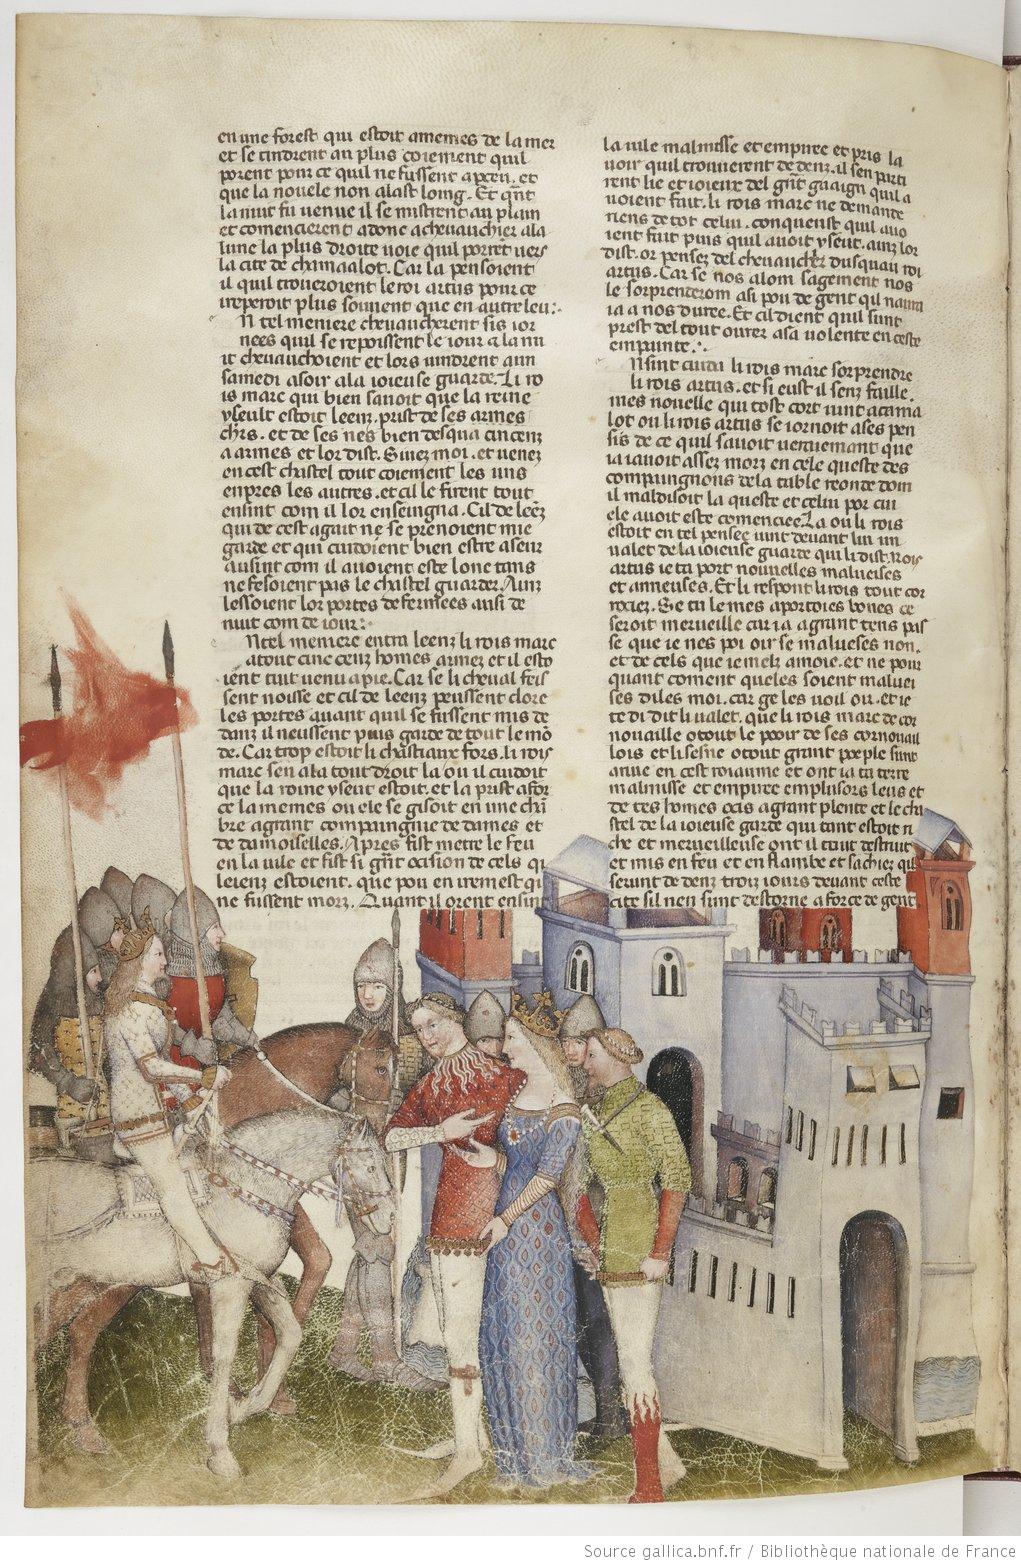 en une forest qui estoit amemes de la mer
et se tindrent au plus coiement quil
porent pour ce quil ne fussent apceu. et
que la nouele non alast loing. Et qnt
la nuit fu venue il se mistrent au plain
et comencierent adonc acheuauchier ala
lune la plus droite uoie quil porret uers
la cite de chamaalot. Car la pensoient
il quil troueroient le roi artus pour ce
ireperoit plus souuent que en autre leu:.
N tel meniere cheuaucherent sis ior
nees quil se repoissent le iour a la nu
it cheuauchoient et lors uindrent aun
samedi asoir ala ioieuse guarde. Li ro
is marc qui bien sauoit que la reine
yseult estoit leenz. prist de ses armes
chrs. et de ses nes bien desqua cincenz
a armes et lor dist. Suiez moi. et uenez
en cest chastel tout coiement les uns
enpres les autres. et cil le firent tout
ensint com il lor enseingna. Cil de leez
qui de cest agait ne se prenoient mie
garde et qui cuidoient bien estre aseur
ausint com il auoient este lonc tans
ne fesoient pas le chastel guarder. Ainz
lessoient lor portes defermees ausi de
nuit com de iour:.
N tel meniere entra leenz li rois marc
atout cinc cenz homes armez et il esto
ient tuit uenu apie. Car se li cheual feis
sent noisse et cil de leenz peussent clore
les portes auant quil se fussent mis de
danz il neussent puis garde de tout le mo
de. Car trop estoit li chastiaux fors. li rois
marc sen ala tout droit la ou il cuidoit
que la roine yseut estoit. et la prist afor
ce la memes ou ele se gisoit en une cha
bre agrant compaingnie de dames et
de damoiselles. Apres fist metre le feu
en la uile et fist si gnt ocision de cels qi
leienz estoient. que pou en iremest qi
ne fussent morz. Quant il orent ensint
la uile malmisse et empiree et pris la
uoir quil trouuerent dedenz. il sen parti
rent lie et ioieux del gnt gaaign quil a
uoient fait. li rois marc ne demande
riens de tot celui. conquenst quil auo
ient fait puis quil auoit yseut. ainz lor
dist. or pensez del cheuaucher dusquau roi
artus. Car se nos alom sagement nos
le sorprenderom asi pou de gent qil naura
ia a nos duree. Et cil dient quil sunt
prest del tout outrer asa uolente en ceste
empainte.:.
Nsint cuida li rois marc sorprendre
li rois artus. et si eust il senz faille.
mes nouelle qui tost cort uint acama
lot ou li rois artus se iornoit ases pen
sis de ce quil sauoit ueraiemant que
ia iauoit assez morz en cele queste des
compaingnons dela table reonde dom
il maldisoit la queste et celui por cui
ele auoit este comenciee. La ou li rois
estoit en tel pensee uint deuant lui un
ualet de la ioieuse guarde qui li dist. Rois
artus ie ta port nouuelles malueises
et anneuses. Et li respont li rois tout cor
rociez. Se tu le mes aportoies bones ce
seroit merueille car ia agrant tens pas
se que ie nes poi oir se malueses non.
et de cels que ie melz amoie. et ne pour
quant coment queles soient maluei
ses di les moi. car ge les uoil oir. et ie
te di dit li ualet. que li rois marc de cor
nouaille o tout le pooir de ses cornouail
lois et li sesne otout grant pueple sunt
ariue en cest roiaume et ont ia ta terre
malmisse et empiree emplusors leus et
de tes homes ocis agrant plente et le cha
stel de la ioieuse garde qui tant estoit ri
che et merueilleuse ont il tout destruit
et mis en feu et en flambe et sachiez qil
serunt dedenz troiz iours deuant ceste
cite sil nen sunt destorne a force de gent
Source gallica.bnf.fr / Bibliothèque nationale de France